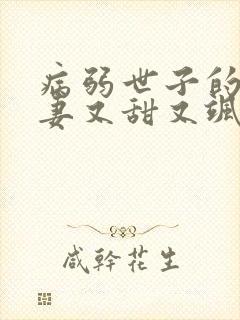 病弱世子的
妻又甜又飒
咸幹花生